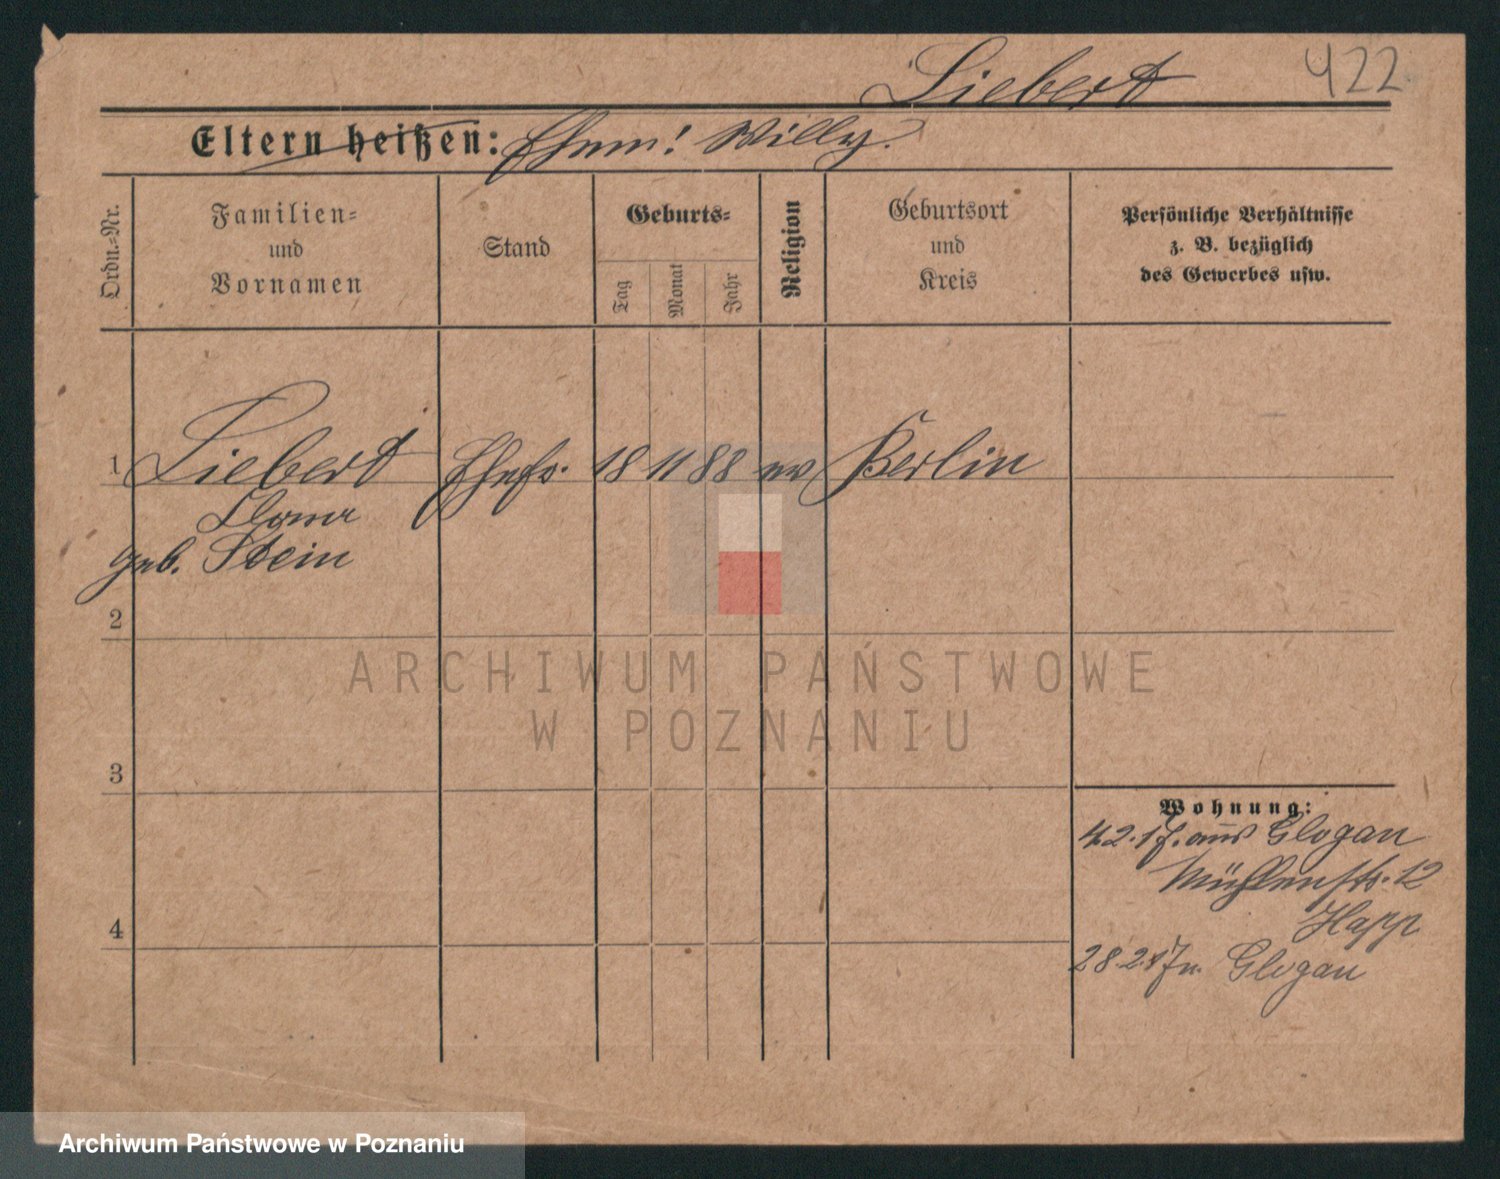 Liebert 422
Eltern heißen: Ehem: Willy.
Ordn.-Nr.
Familien-
und
Vornamen
Stand
Geburts-
Tag
Monat
Jahr
Religion
Geburtsort
und
Kreis
Persönliche Verhältnisse
z. B. bezüglich
des Gewerbes usw.
1 Liebert Ehefr. 18 11 88 ev Berlin
geb. Stein
2
ARCHIWUM PAŃSTWOWE
W POZNANIU
3
Wohnung:
4.2.17. aus Glogau
Mühlenstr. 12
Happ
4
28.2.17 n. Glogau
Archiwum Państwowe w Poznaniu